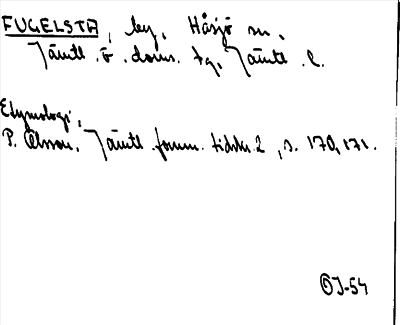 FUGELSTA, by, Håsjö sn,
Jämtl. ö. doms. tg, Jämtl. l.
Etymologi,
P. Olsson, Jämtl. fornm. tidskr. 2, s. 170, 171.
OJ-54